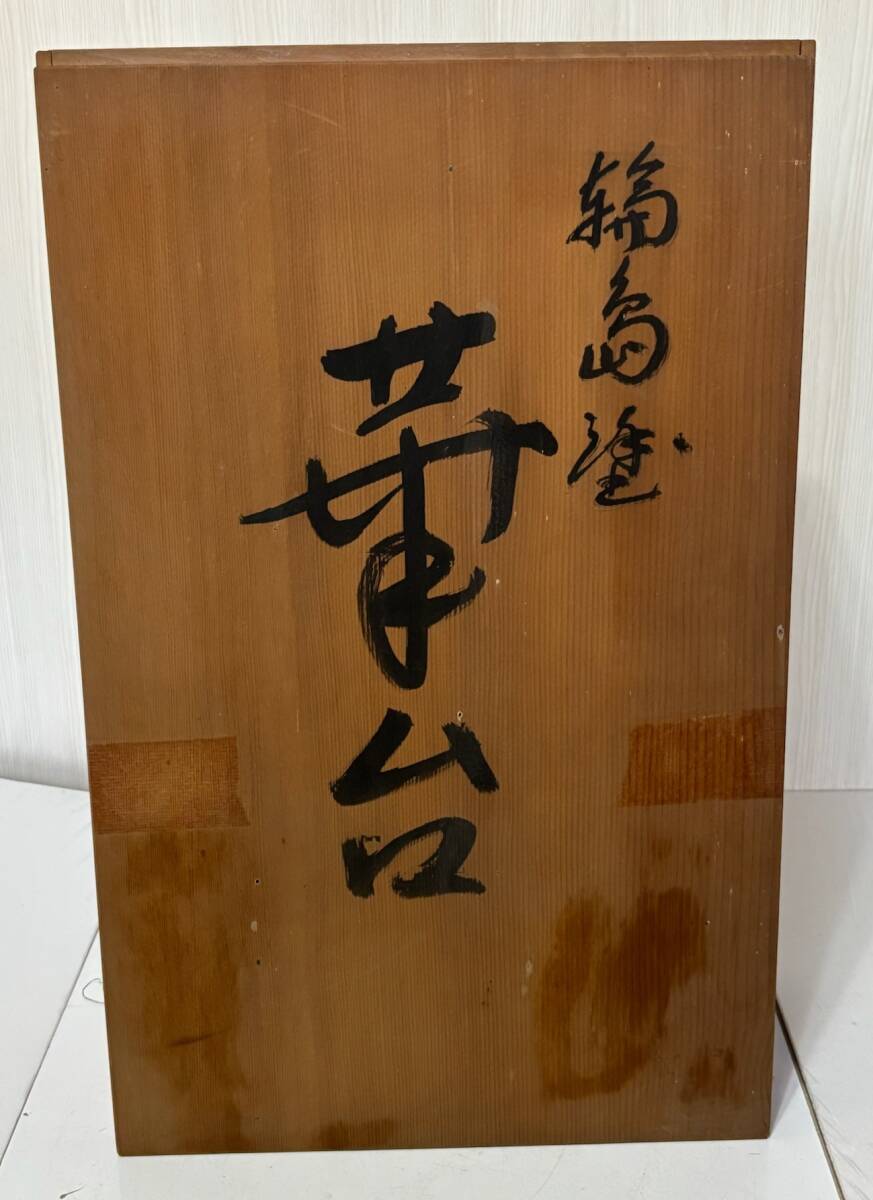 輪島塗
華台